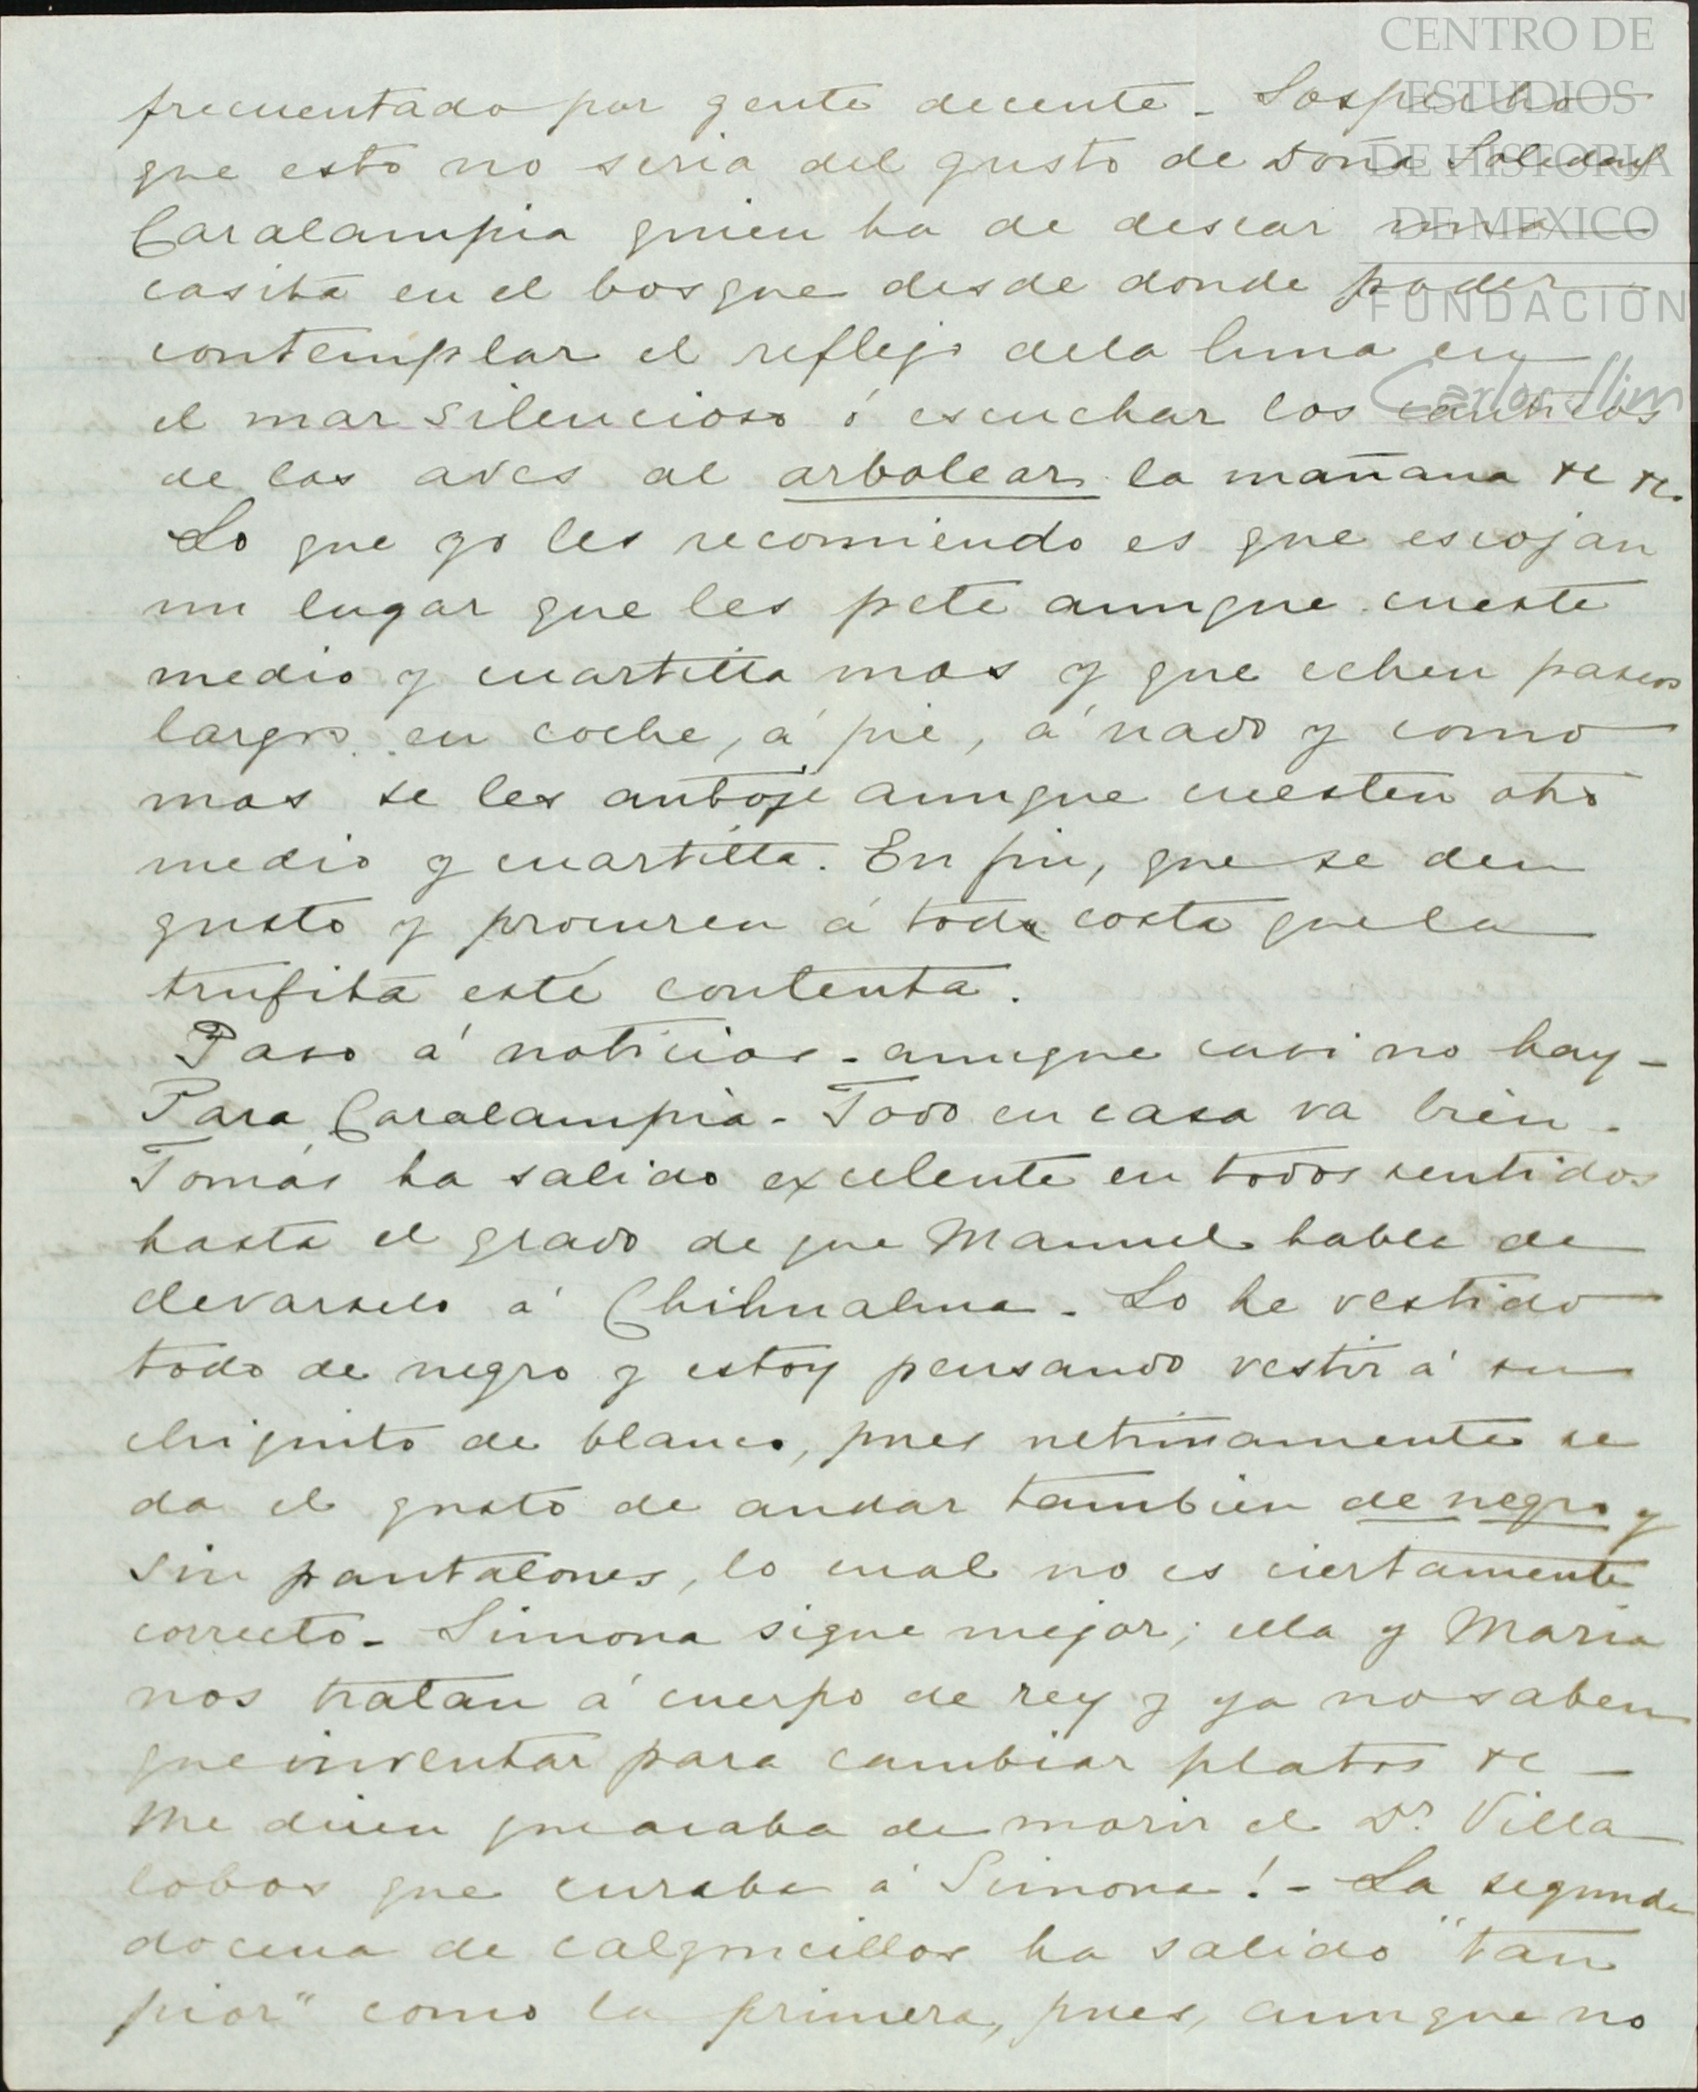 CENTRO DE
ESTUDIOS
DE HISTORIA
DE MEXICO
FUNDACIÓN
Carlos Slim
frecuentado por gente decente - Sospecho
que esto no seria del gusto de Doña Soledad
Caralampia quien ha de desear una
casita en el bosque desde donde poder
contemplar el reflejo dela luna en
el mar silencioso ó escuchar los canticos
de las aves al arbolear la mañana &c &c.
Lo que yo les recomiendo es que escojan
un lugar que les pete aunque cueste
medio y cuartilla mas y que echen paseos
largos en coche, á pié, á nado y como
mas se les antoje aunque cuesten otro
medio y cuartilla. En fin, que se den
gusto y procuren á toda costa que la
trufita esté contenta.
Paso á noticias - aunque casi no hay -
Para Caralampia - Todo en casa va bien -
Tomás ha salido excelente en todos sentidos
hasta el grado de que Manuel habla de
llevarselo á Chihuahua - Lo he vestido
todo de negro y estoy pensando vestir á su
chiquito de blanco, pues ultimamente se
da el gusto de andar tambien de negro y
sin pantalones, lo cual no es ciertamente
correcto - Simona sigue mejor; ella y Maria
nos tratan á cuerpo de rey y ya no saben
que inventar para cambiar platos &c -
Me dicen que acaba de morir el Dr. Villa
lobos que curaba á Simona! - La segunda
docena de calzoncillos ha salido "tan
pior" como la primera, pues, aunque no